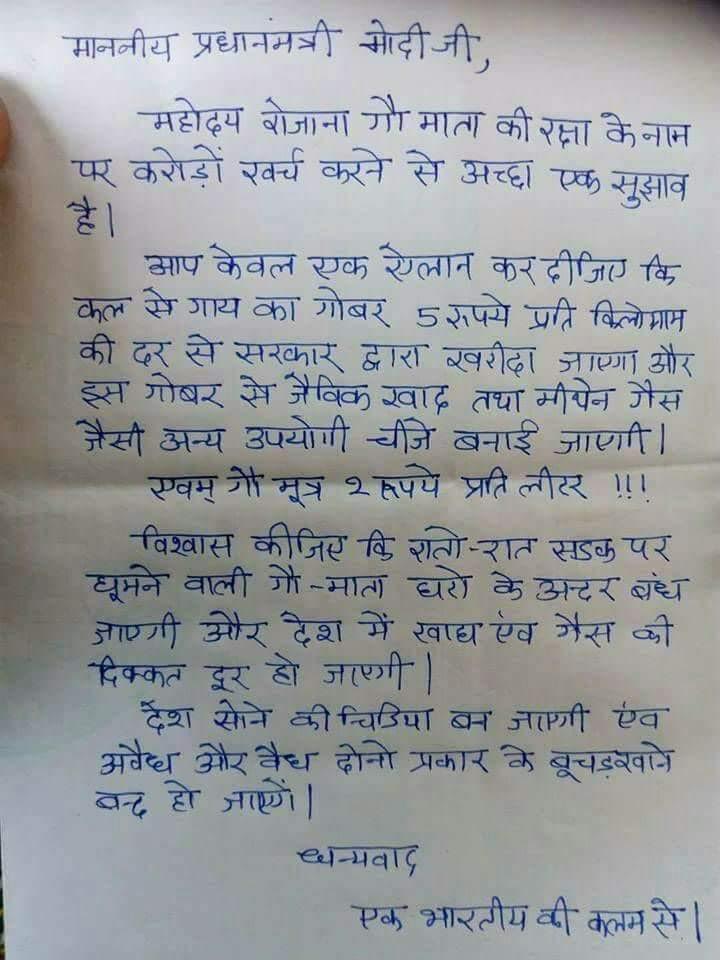 माननीय प्रधानमंत्री मोदी जी,
महोदय रोजाना गौ माता की रक्षा के नाम
पर करोड़ों खर्च करने से अच्छा एक सुझाव
है।
आप केवल एक ऐलान कर दीजिए कि
कल से गाय का गोबर 5 रुपये प्रति किलोग्राम
की दर से सरकार द्वारा खरीदा जाएगा और
इस गोबर से जैविक खाद तथा मीथेन गैस
जैसी अन्य उपयोगी चीजे बनाई जाएगी।
एवम् गौ मूत्र २ रूपये प्रति लीटर !!!
विश्वास कीजिए कि रातो-रात सडक पर
घूमने वाली गौ-माता घरो के अन्दर बंध
जाएगी और देश में खाद्य एंव गैस की
दिक्कत दूर हो जाएगी।
देश सोने की चिडिया बन जाएगी एंव
अवैध और वैध दोनो प्रकार के बूचड़खाने
बन्द हो जाएगें।
धन्यवाद
एक भारतीय की कलम से।